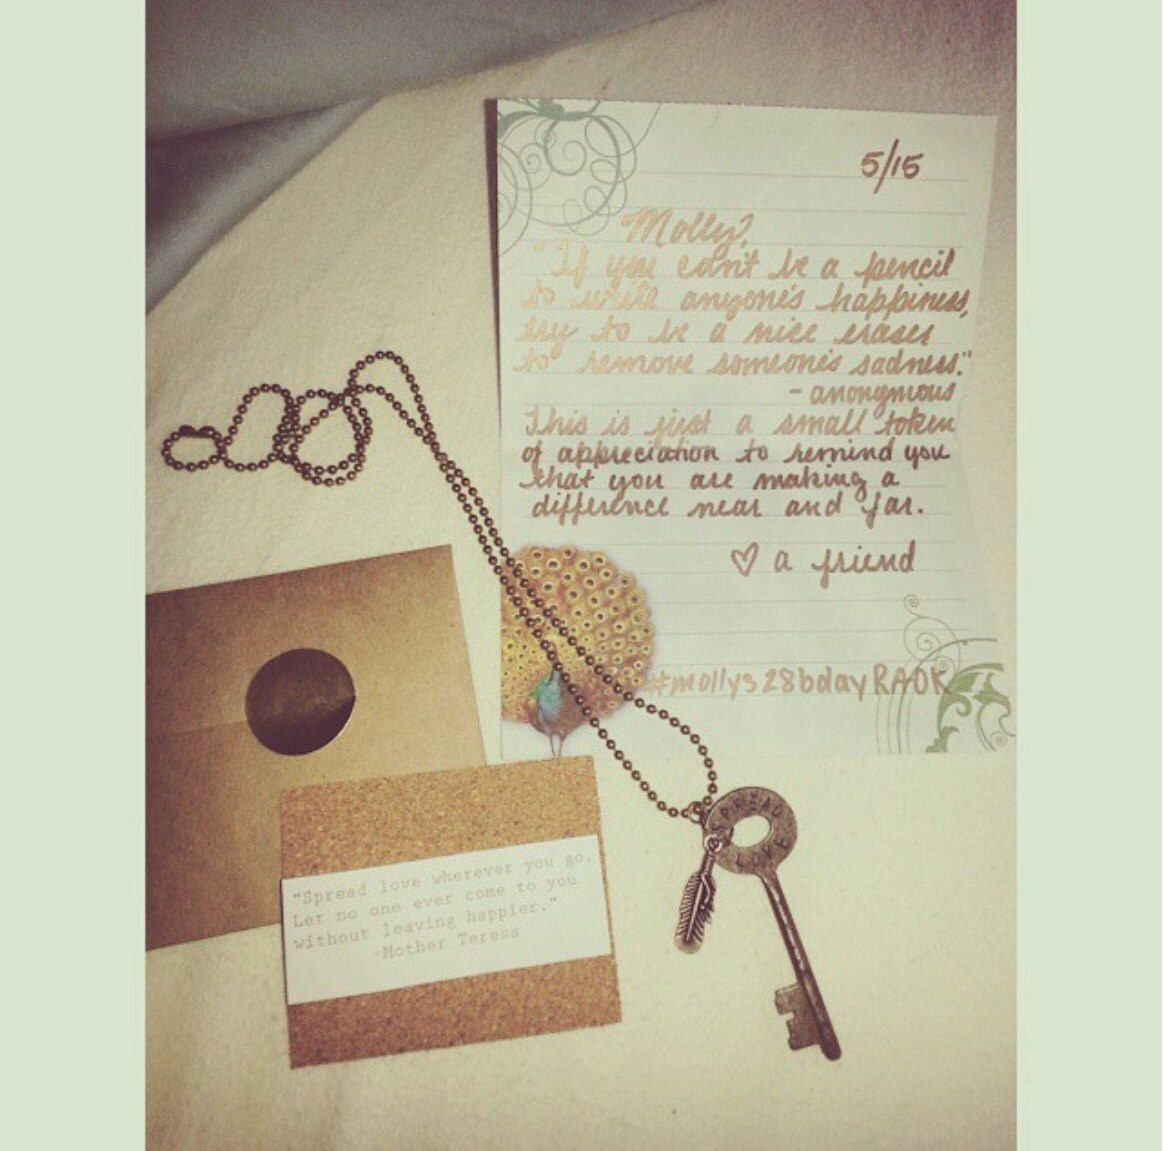 5/15
Molly,
"If you can't be a pencil
to write anyone's happiness,
try to be a nice eraser
to remove someone's sadness."
- anonymous
This is just a small token
of appreciation to remind you
that you are making a
difference near and far.
♡ a friend
#mollys28bdayRAOK
SPREAD
LOVE
"Spread love wherever you go.
Let no one ever come to you
without leaving happier."
-Mother Teresa